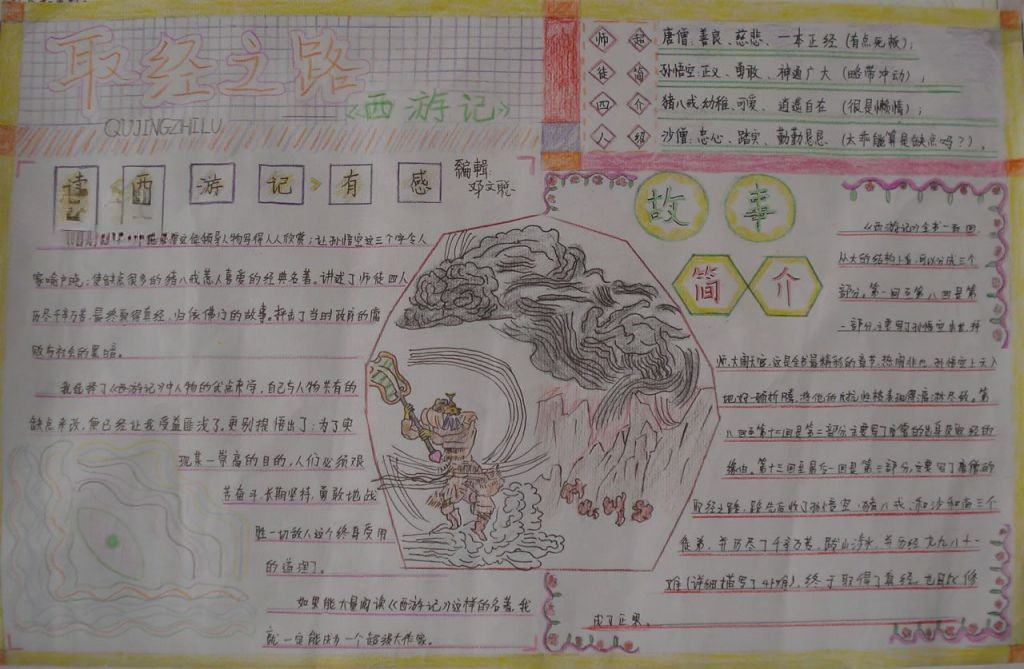 取经之路
QUJINGZHILU
《西游记》
读西游记有感
编辑:
邓文聪
让孙悟空这三个字令人
家喻户晓;使缺点很多的猪八戒惹人喜爱的经典名著。讲述了师徒四人
历尽千辛万苦,最终取得真经,归依佛门的故事。抨击了当时政府的腐
败与社会的黑暗。
我选择了《西游记》中人物的优点来学,自己与人物共有的
缺点来改,便已经让我受益匪浅了,更别提悟出了:为了实
现某一崇高的目的,人们必须艰
苦奋斗,长期坚持,勇敢地战
胜一切敌人这个终身受用
的道理了。
如果能大量阅读《西游记》这样的名著,我
就一定能成为一个超级大作家。
师徒四人
超简介绍
唐僧:善良、慈悲、一本正经(有点死板);
孙悟空:正义、勇敢、神通广大(略带冲动);
猪八戒:幼稚、可爱、逍遥自在(很是懒惰);
沙僧:忠心、踏实、勤勤恳恳(太乖能算是缺点吗?)。
故事
简介
《西游记》全书一百回,
从大的结构上看,可以分成三个
部分,第一回至第八回是第
一部分,主要写了孙悟空出世,拜
师,大闹天宫,这是全书最精彩的章节,热闹非凡,孙悟空上天入
地,好一顿折腾,将他的反抗性格表现得淋漓尽致。第
八回至第十二回是第二部分,主要写了唐僧的出身及取经的
缘由。第十三回至最后一回是第三部分,主要写了唐僧的
取经之路,路先后收了孙悟空、猪八戒、和沙和尚三个
徒弟,并历尽了千辛万苦,跋山涉水,并历经九九八十一
难(详细描写了41难),终于取得了真经,也因此修
成了正果。